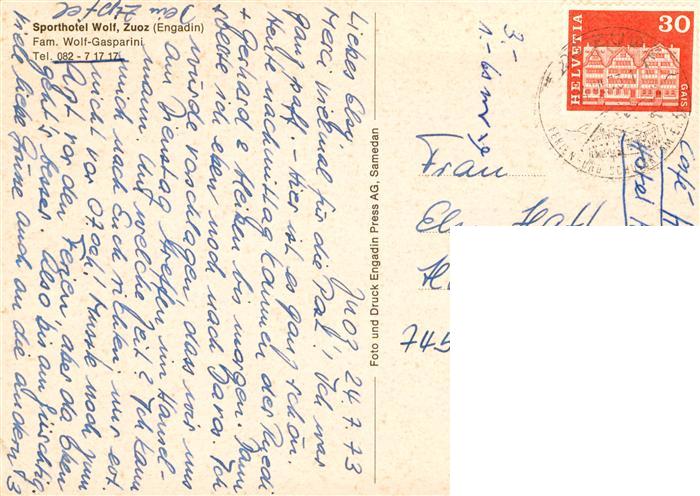 Sporthotel Wolf, Zuoz (Engadin)
Fam. Wolf-Gasparini
Tel. 082 - 7 17 17
Zuoz 24.7.73
Liebes Elsy,
Merci vielmal für die Post! Ich war
ganz paff - hier ist es ganz schön.
Heute nachmittag kommen der Ruedi
+ Gerhard & Heiken bis morgen. Dann
reise ich eben noch nach Davos. Ich
würde vorschlagen, dass wir uns
am Dienstag treffen im Hansel-
mann. Auf welche Zeit? Ich kann
mich nach Euch richten, nur erst
nicht vor 07001! Musste noch zum
Arzt vor den Ferien, aber da oben
geht's besser. Also bis am
viele liebe Grüsse auch an die anderen 3
Dein Zipfel
Foto und Druck Engadin Press AG, Samedan
3.-
HELVETIA
30
GAIS
Frau
745
Hotel